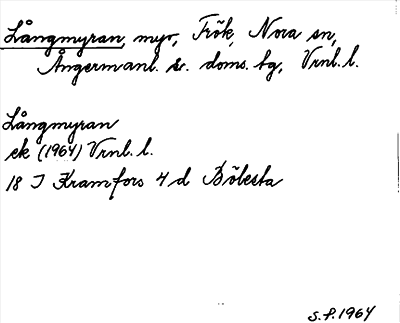 Långmyran, myr, Frök, Nora sn,
Ångermanl. s. doms. tg, Vrnl. l.
Långmyran
ek (1964) Vrnl. l.
18 J Kramfors 4 d Bölesta
S.F. 1964